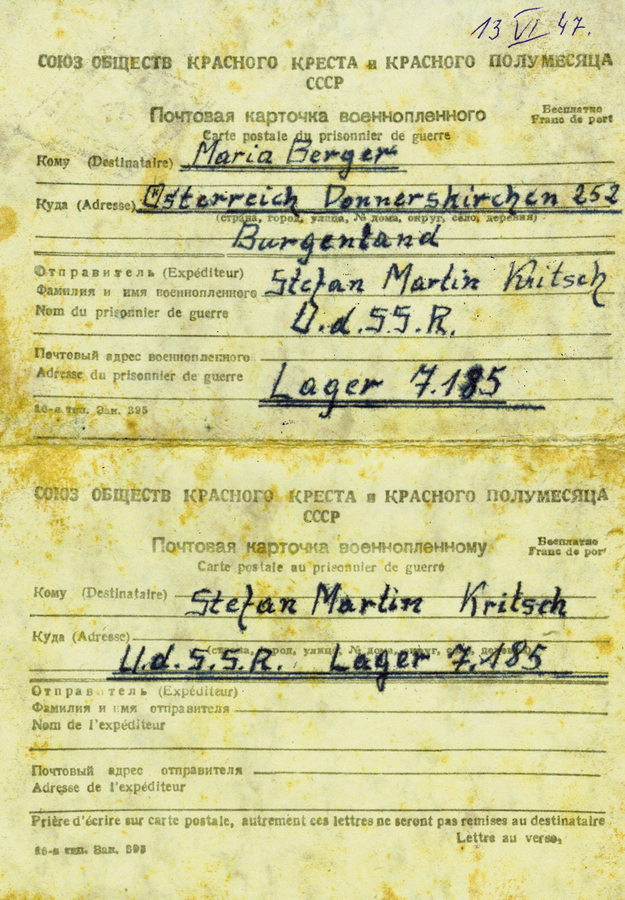 13 VI 47.
СОЮЗ ОБЩЕСТВ КРАСНОГО КРЕСТА и КРАСНОГО ПОЛУМЕСЯЦА
СССР
Почтовая карточка военнопленного
Бесплатно
Carte postale du prisonnier de guerre
Franc de port
Кому (Destinataire) Maria Berger
Куда (Adresse) Österreich Donnerskirchen 252
(страна, город, улица, № дома, округ, село, деревня)
Burgenland
Отправитель (Expéditeur)
Фамилия и имя военнопленного Stefan Martin Kritsch
Nom du prisonnier de guerre
U.d.S.S.R.
Почтовый адрес военнопленного
Adresse du prisonnier de guerre
Lager 7.185
16-я тип. Зак. 395
СОЮЗ ОБЩЕСТВ КРАСНОГО КРЕСТА и КРАСНОГО ПОЛУМЕСЯЦА
СССР
Почтовая карточка военнопленному
Бесплатно
Franc de port
Carte postale au prisonnier de guerre
Кому (Destinataire) Stefan Martin Kritsch
Куда (Adresse)
(страна, город, улица, № дома, округ, село, деревня)
U.d.S.S.R. Lager 7.185
Отправитель (Expéditeur)
Фамилия и имя отправителя
Nom de l'expéditeur
Почтовый адрес отправителя
Adresse de l'expéditeur
Prière d'écrire sur carte postale, autrement ces lettres ne seront pas remises au destinataire
Lettre au verso,
16-я тип. Зак. 395